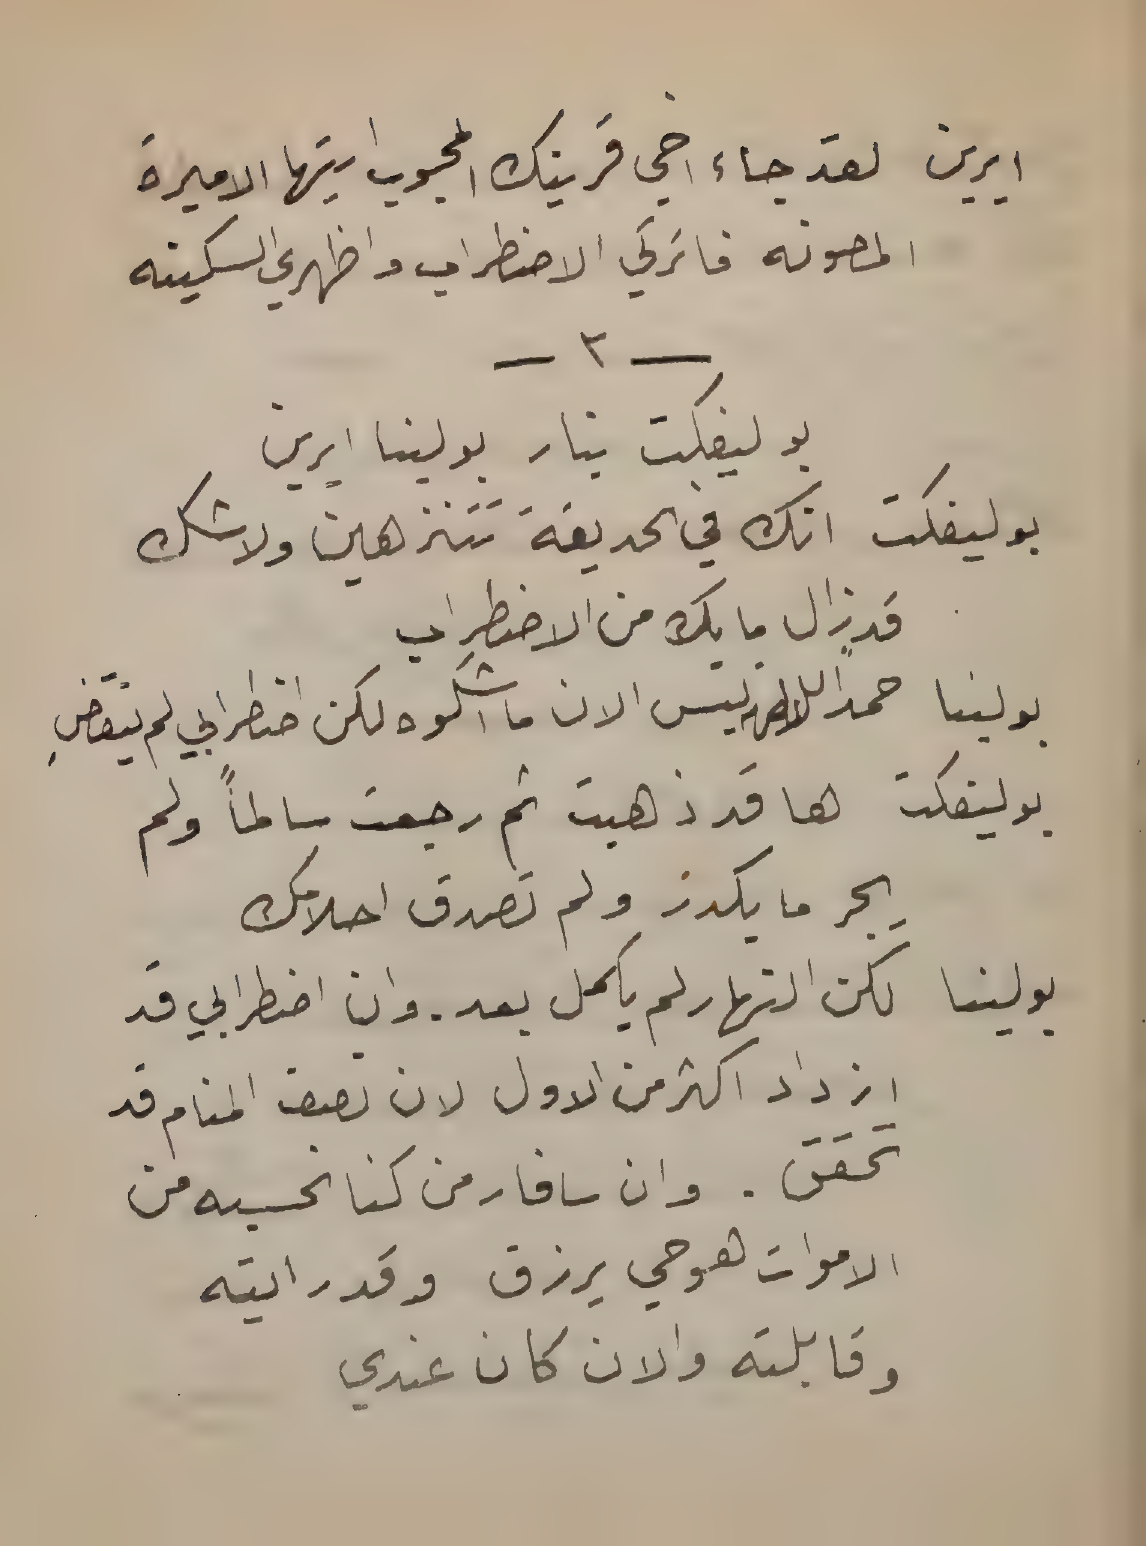 ايرين لقد جاء اخي قرينك المحبوب ايتها الاميرة
المصونه فاتركي الاضطراب واظهري السكينه
— ٣ —
بوليفكت ينار بولينا ايرين
بوليفكت انك في الحديقة تتنزهين ولاشك
قدزال مابك من الاضطراب
بولينا حمداً ليس الان ما اشكوه لكن اضطرابي لم ينقضِ
بوليفكت ها قد ذهبت ثم رجعت سالماً ولم
يجر ما يكدر ولم تصدق احلامك
بولينا لكن النهار لم يكمل بعد. وان اضطرابي قد
ازداد اكثر من الاول لان نصف المنام قد
تحقق . وان سافار من كنا نحسبه من
الاموات هو حي يرزق وقد رايته
وقابلته والان كان عندي